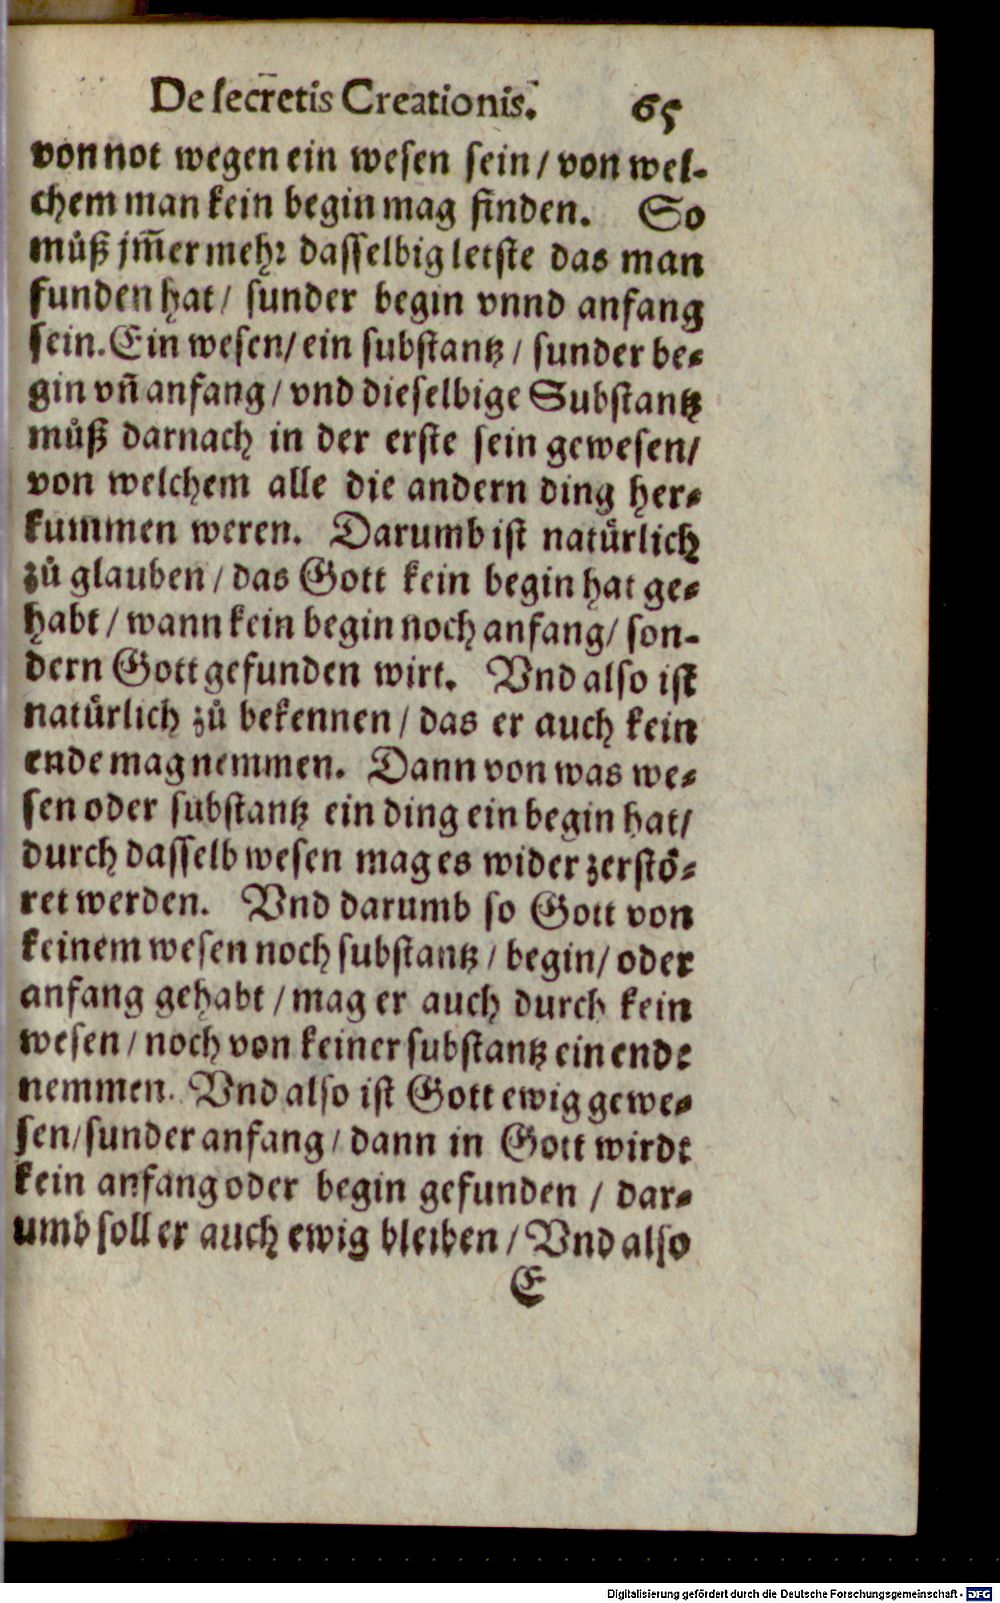 De secretis Creationis. 65
von not wegen ein wesen sein / von wel-
chem man kein begin mag finden. So
můß jm̃er mehr dasselbig letste das man
funden hat / sunder begin vnnd anfang
sein. Ein wesen / ein substantz / sunder be-
gin vñ anfang / vnd dieselbige Substantz
můß darnach in der erste sein gewesen /
von welchem alle die andern ding her-
kummen weren. Darumb ist natürlich
zů glauben / das Gott kein begin hat ge-
habt / wann kein begin noch anfang / son-
dern Gott gefunden wirt. Vnd also ist
natürlich zů bekennen / das er auch kein
ende mag nemmen. Dann von was we-
sen oder substantz ein ding ein begin hat /
durch dasselb wesen mag es wider zerstö-
ret werden. Vnd darumb so Gott von
keinem wesen noch substantz / begin / oder
anfang gehabt / mag er auch durch kein
wesen / noch von keiner substantz ein ende
nemmen. Vnd also ist Gott ewig gewe-
sen / sunder anfang / dann in Gott wirdt
kein anfang oder begin gefunden / dar-
umb soll er auch ewig bleiben / Vnd also
E
Digitalisierung gefördert durch die Deutsche Forschungsgemeinschaft - DFG